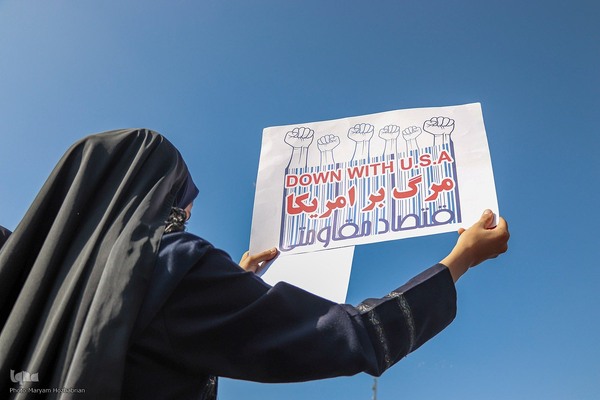 DOWN WITH U.S.A
مرگ بر امریکا
اقتصاد مقاومتی
Photo:Maryam Hozhabrian